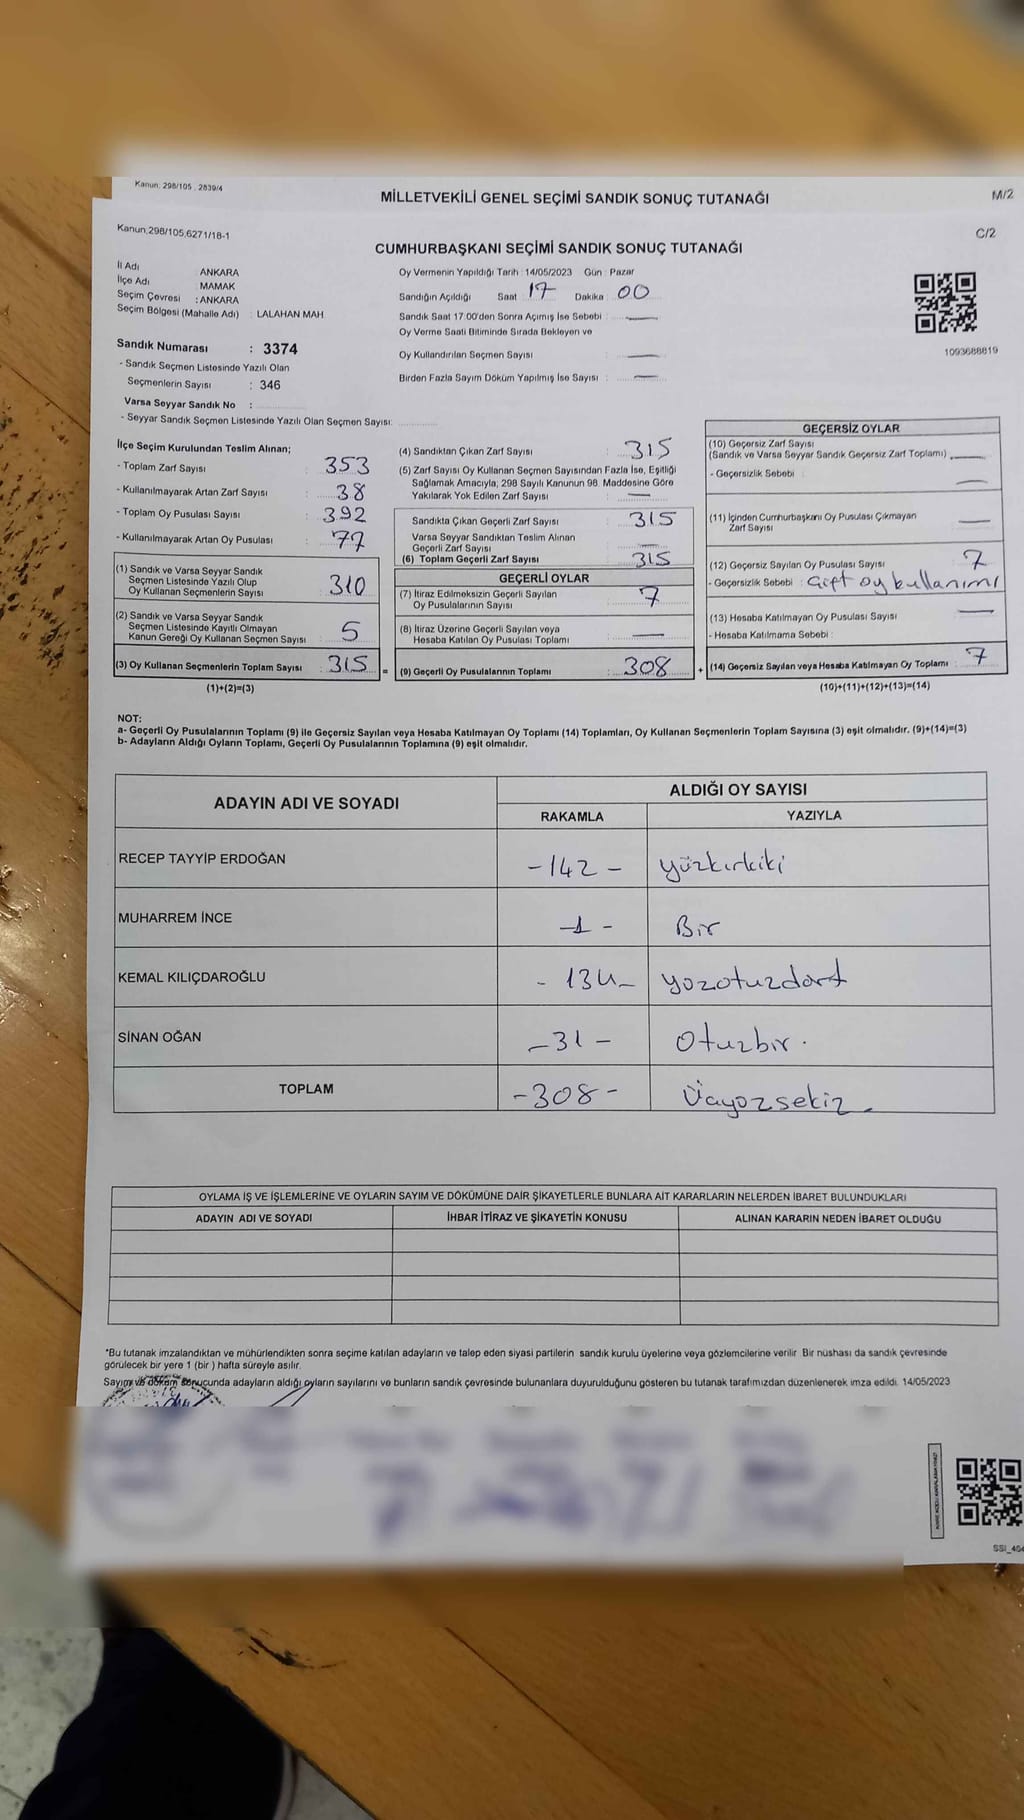 Kanun: 298/105 , 2839/4
MİLLETVEKİLİ GENEL SEÇİMİ SANDIK SONUÇ TUTANAĞI
M/2
Kanun,298/105,6271/18-1
C/2
CUMHURBAŞKANI SEÇİMİ SANDIK SONUÇ TUTANAĞI
İl Adı ANKARA
İlçe Adı MAMAK
Seçim Çevresi : ANKARA
Seçim Bölgesi (Mahalle Adı) : LALAHAN MAH
Sandık Numarası : 3374
- Sandık Seçmen Listesinde Yazılı Olan
Seçmenlerin Sayısı : 346
Varsa Seyyar Sandık No :
- Seyyar Sandık Seçmen Listesinde Yazılı Olan Seçmen Sayısı:
Oy Vermenin Yapıldığı Tarih : 14/05/2023 Gün : Pazar
Sandığın Açıldığı Saat 17 Dakika 00
Sandık Saat 17:00'den Sonra Açımış İse Sebebi : —
Oy Verme Saati Bitiminde Sırada Bekleyen ve
Oy Kullandırılan Seçmen Sayısı : —
Birden Fazla Sayım Döküm Yapılmış İse Sayısı : —
1093688819
İlçe Seçim Kurulundan Teslim Alınan;
- Toplam Zarf Sayısı : 353
- Kullanılmayarak Artan Zarf Sayısı : 38
- Toplam Oy Pusulası Sayısı : 392
- Kullanılmayarak Artan Oy Pusulası : 77
(1) Sandık ve Varsa Seyyar Sandık
Seçmen Listesinde Yazılı Olup
Oy Kullanan Seçmenlerin Sayısı : 310
(2) Sandık ve Varsa Seyyar Sandık
Seçmen Listesinde Kayıtlı Olmayan
Kanun Gereği Oy Kullanan Seçmen Sayısı : 5
(3) Oy Kullanan Seçmenlerin Toplam Sayısı : 315 =
(1)+(2)=(3)
(4) Sandıktan Çıkan Zarf Sayısı : 315
(5) Zarf Sayısı Oy Kullanan Seçmen Sayısından Fazla İse, Eşitliği
Sağlamak Amacıyla; 298 Sayılı Kanunun 98. Maddesine Göre
Yakılarak Yok Edilen Zarf Sayısı : —
Sandıkta Çıkan Geçerli Zarf Sayısı : 315
Varsa Seyyar Sandıktan Teslim Alınan
Geçerli Zarf Sayısı : —
(6) Toplam Geçerli Zarf Sayısı : 315
GEÇERLİ OYLAR
(7) İtiraz Edilmeksizin Geçerli Sayılan
Oy Pusulalarının Sayısı : 7
(8) İtiraz Üzerine Geçerli Sayılan veya
Hesaba Katılan Oy Pusulası Toplamı : —
(9) Geçerli Oy Pusulalarının Toplamı : 308 +
GEÇERSİZ OYLAR
(10) Geçersiz Zarf Sayısı
(Sandık ve Varsa Seyyar Sandık Geçersiz Zarf Toplamı) —
- Geçersizlik Sebebi : —
(11) İçinden Cumhurbaşkanı Oy Pusulası Çıkmayan
Zarf Sayısı —
(12) Geçersiz Sayılan Oy Pusulası Sayısı : 7
- Geçersizlik Sebebi : Çift oy kullanımı
(13) Hesaba Katılmayan Oy Pusulası Sayısı : —
- Hesaba Katılmama Sebebi :
(14) Geçersiz Sayılan veya Hesaba Katılmayan Oy Toplamı : 7
(10)+(11)+(12)+(13)=(14)
NOT:
a- Geçerli Oy Pusulalarının Toplamı (9) ile Geçersiz Sayılan veya Hesaba Katılmayan Oy Toplamı (14) Toplamları, Oy Kullanan Seçmenlerin Toplam Sayısına (3) eşit olmalıdır. (9)+(14)=(3)
b- Adayların Aldığı Oyların Toplamı, Geçerli Oy Pusulalarının Toplamına (9) eşit olmalıdır.
ADAYIN ADI VE SOYADI
ALDIĞI OY SAYISI
RAKAMLA YAZIYLA
RECEP TAYYİP ERDOĞAN -142- yüzkırkiki
MUHARREM İNCE -1- Bir
KEMAL KILIÇDAROĞLU -134- yüzotuzdört
SİNAN OĞAN -31- Otuzbir.
TOPLAM -308- Üçyüzsekiz.
OYLAMA İŞ VE İŞLEMLERİNE VE OYLARIN SAYIM VE DÖKÜMÜNE DAİR ŞİKAYETLERLE BUNLARA AİT KARARLARIN NELERDEN İBARET BULUNDUKLARI
ADAYIN ADI VE SOYADI İHBAR İTİRAZ VE ŞİKAYETİN KONUSU ALINAN KARARIN NEDEN İBARET OLDUĞU
*Bu tutanak imzalandıktan ve mühürlendikten sonra seçime katılan adayların ve talep eden siyasi partilerin sandık kurulu üyelerine veya gözlemcilerine verilir. Bir nüshası da sandık çevresinde
görülecek bir yere 1 (bir ) hafta süreyle asılır.
Sayım ve döküm sonucunda adayların aldığı oyların sayılarını ve bunların sandık çevresinde bulunanlara duyurulduğunu gösteren bu tutanak tarafımızdan düzenlenerek imza edildi. 14/05/2023